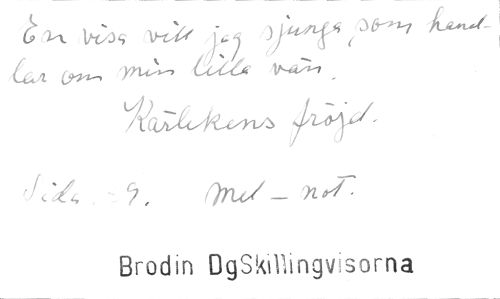 En visa vill jag sjunga, som hand-
lar om min lilla vän.
Kärlekens fröjd.
Sida. 9. Mel – not.
Brodin DgSkillingvisorna